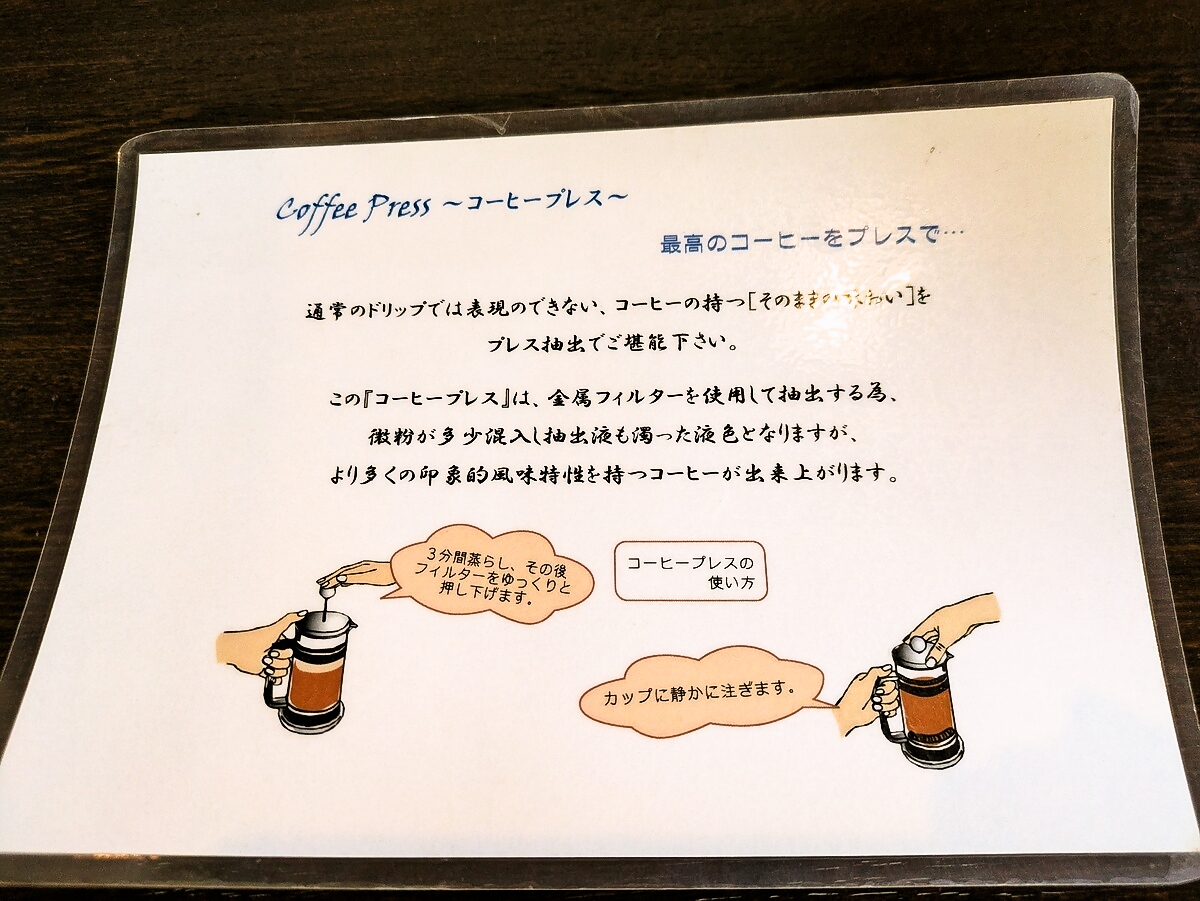 Coffee Press ～コーヒープレス～
最高のコーヒーをプレスで…
通常のドリップでは表現のできない、コーヒーの持つ［そのままの味わい］を
プレス抽出でご堪能下さい。
この『コーヒープレス』は、金属フィルターを使用して抽出する為、
微粉が多少混入し抽出液も濁った液色となりますが、
より多くの印象的風味特性を持つコーヒーが出来上がります。
3分間蒸らし、その後
フィルターをゆっくりと
押し下げます。
コーヒープレスの
使い方
カップに静かに注ぎます。